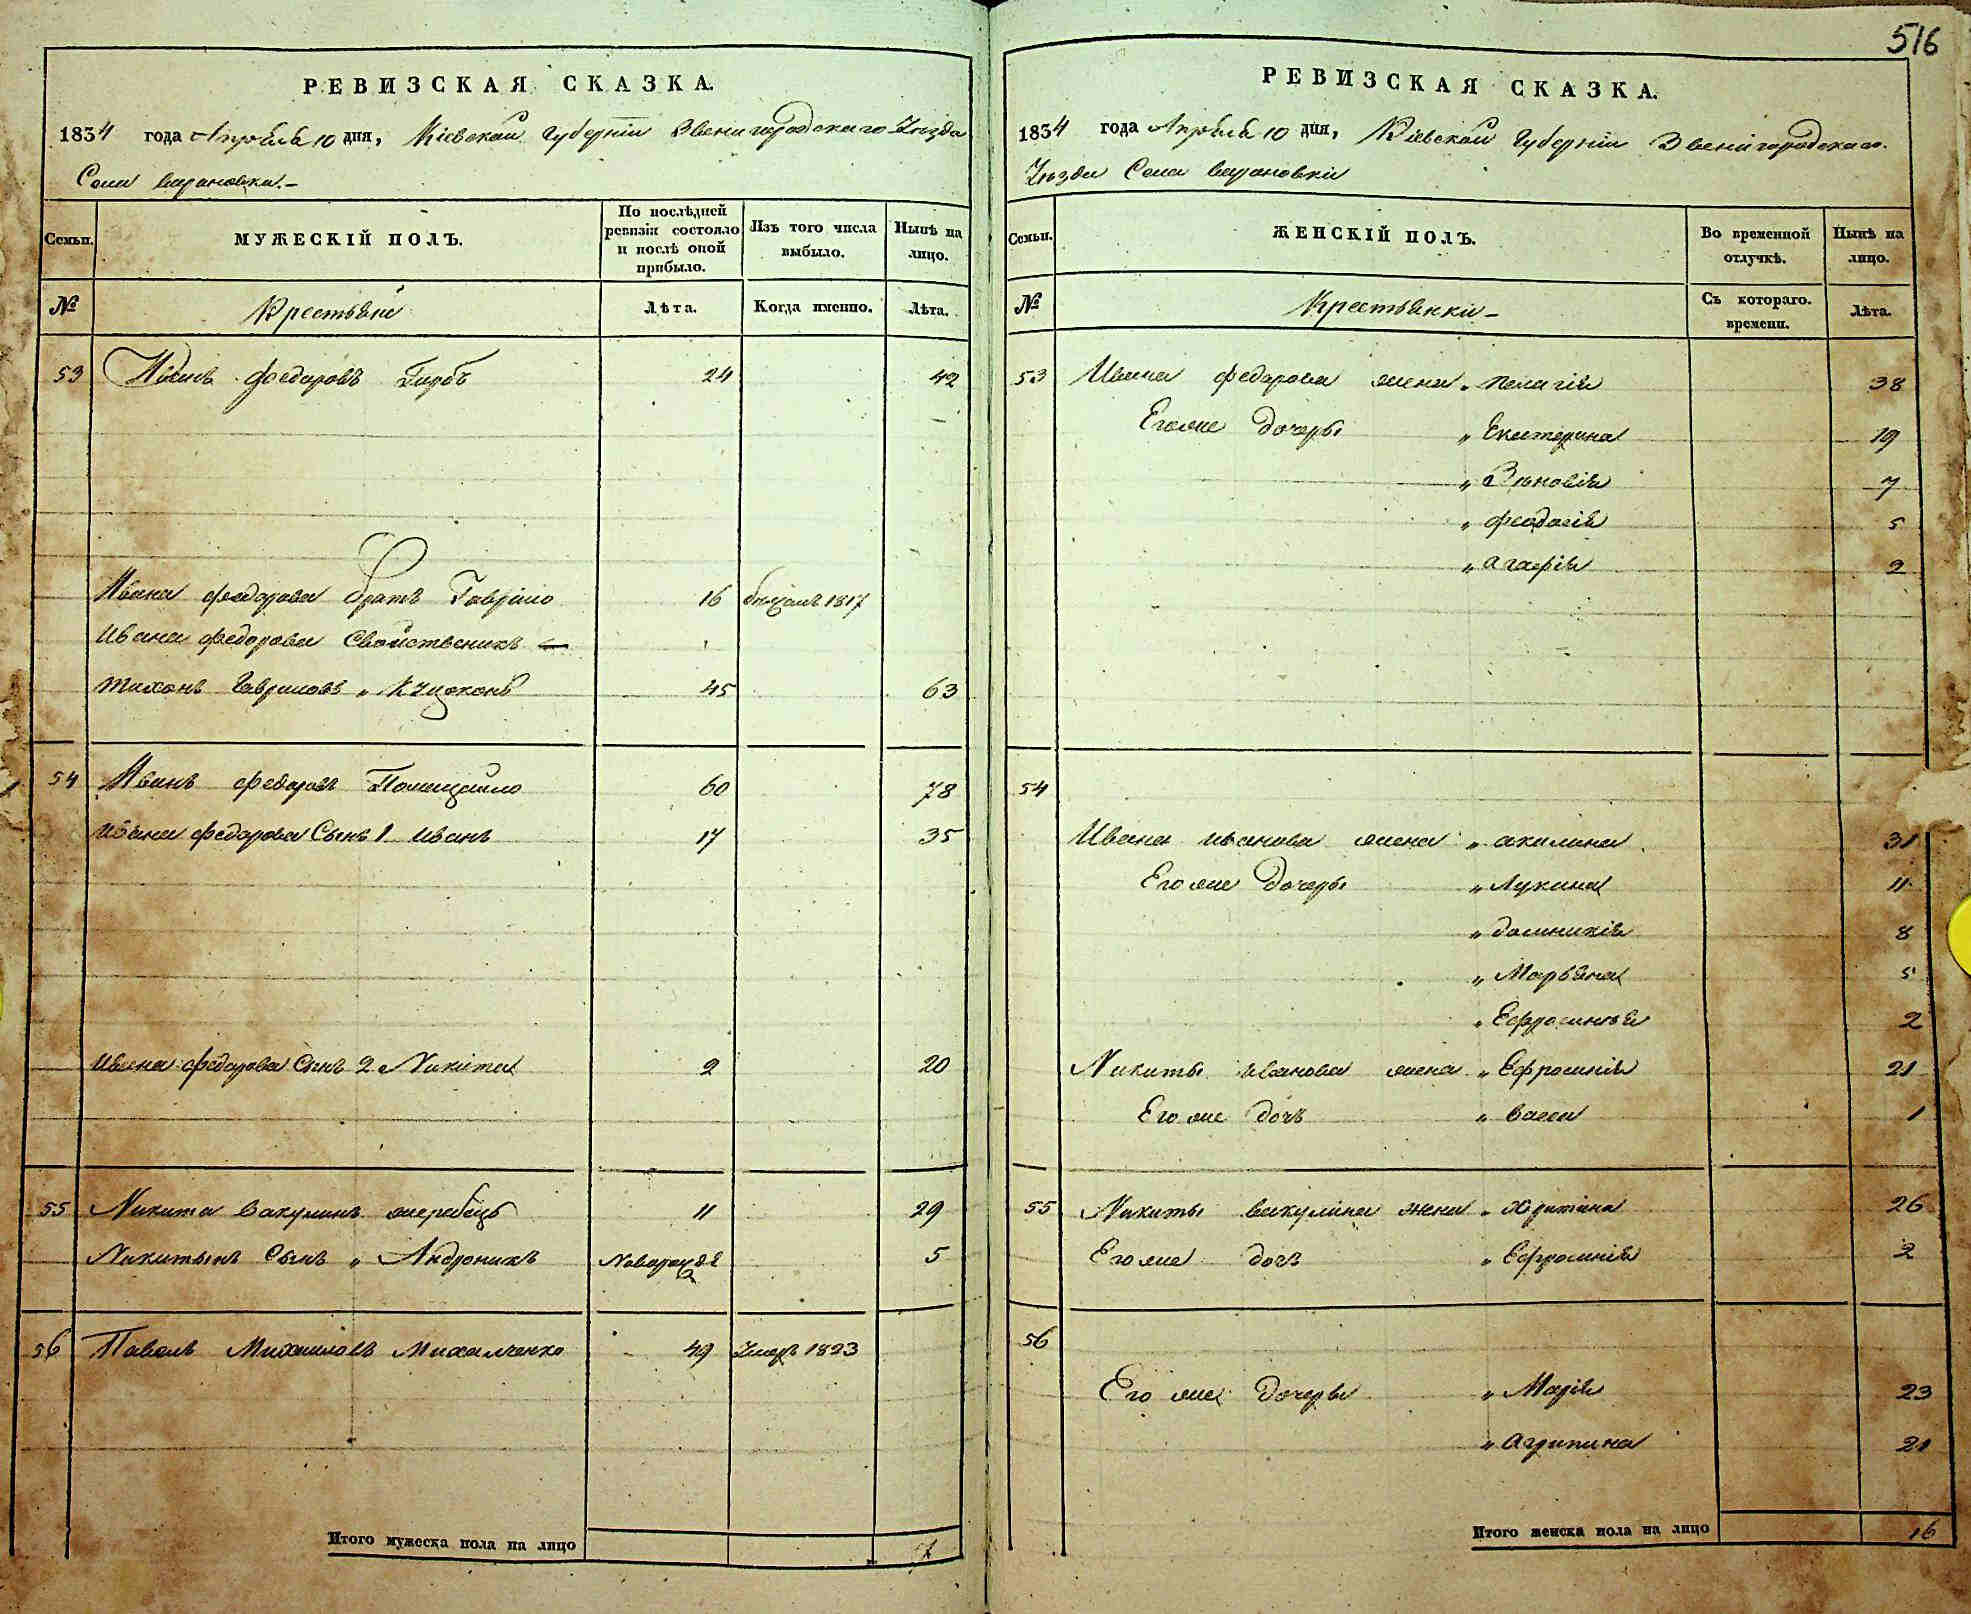 516
РЕВИЗСКАЯ СКАЗКА.
1834 года Апреля 10 дня, Кіевской Губерніи Звенигородскаго Уезда
Села
Семьи.
МУЖЕСКІЙ ПОЛЪ.
По послѣдней ревизіи состояло и послѣ оной прибыло.
Изъ того числа выбыло.
Нынѣ на лицо.
№
Крестьяне
Лѣта.
Когда именно.
Лѣта.
53 Иванъ Федоровъ 24 42
Ивана Федорова братъ Гаврило 16 1817
Ивана Федорова Свойственикъ
Тихонъ Гавриловъ „ 45 63
54 Иванъ Федоровъ 60 78
Ивана Федорова Сынъ 1 Иванъ 17 35
Ивана Федорова Сынъ 2 Никита 2 20
55 Никита Вакулинъ жеребецъ 11 29
Никитынъ Сынъ „ Андроникъ 5
56 Павелъ Михайловъ Михалченко 49 Умеръ 1823
Итого мужеска пола на лицо 7
РЕВИЗСКАЯ СКАЗКА.
1834 года Апреля 10 дня, Кіевской Губерніи Звенигородскаго
Уезда Села
Семьи.
ЖЕНСКІЙ ПОЛЪ.
Во временной отлучкѣ.
Нынѣ на лицо.
№
Крестьянки
Съ котораго. времени.
Лѣта.
53 Ивана Федорова жена „ Пелагія 38
Его же дочеры „ Екатерина 19
„ Зѣновія 7
„ Феодосія 5
„ Агафія 2
54
Ивана Иванова жена „ Акилина 31
Его же дочеры „ Лукина 11
„ Домникія 8
„ Марьяна 5
„ Ефросинья 2
Никиты Иванова жена „ Ефросинія 21
Его же дочь „ Васса 1
55 Никиты Вакулина жена „ Христина 26
Его же дочь „ Ефросинія 2
56
Его же дочеры „ Марія 23
„ Агрипина 21
Итого женска пола на лицо 16